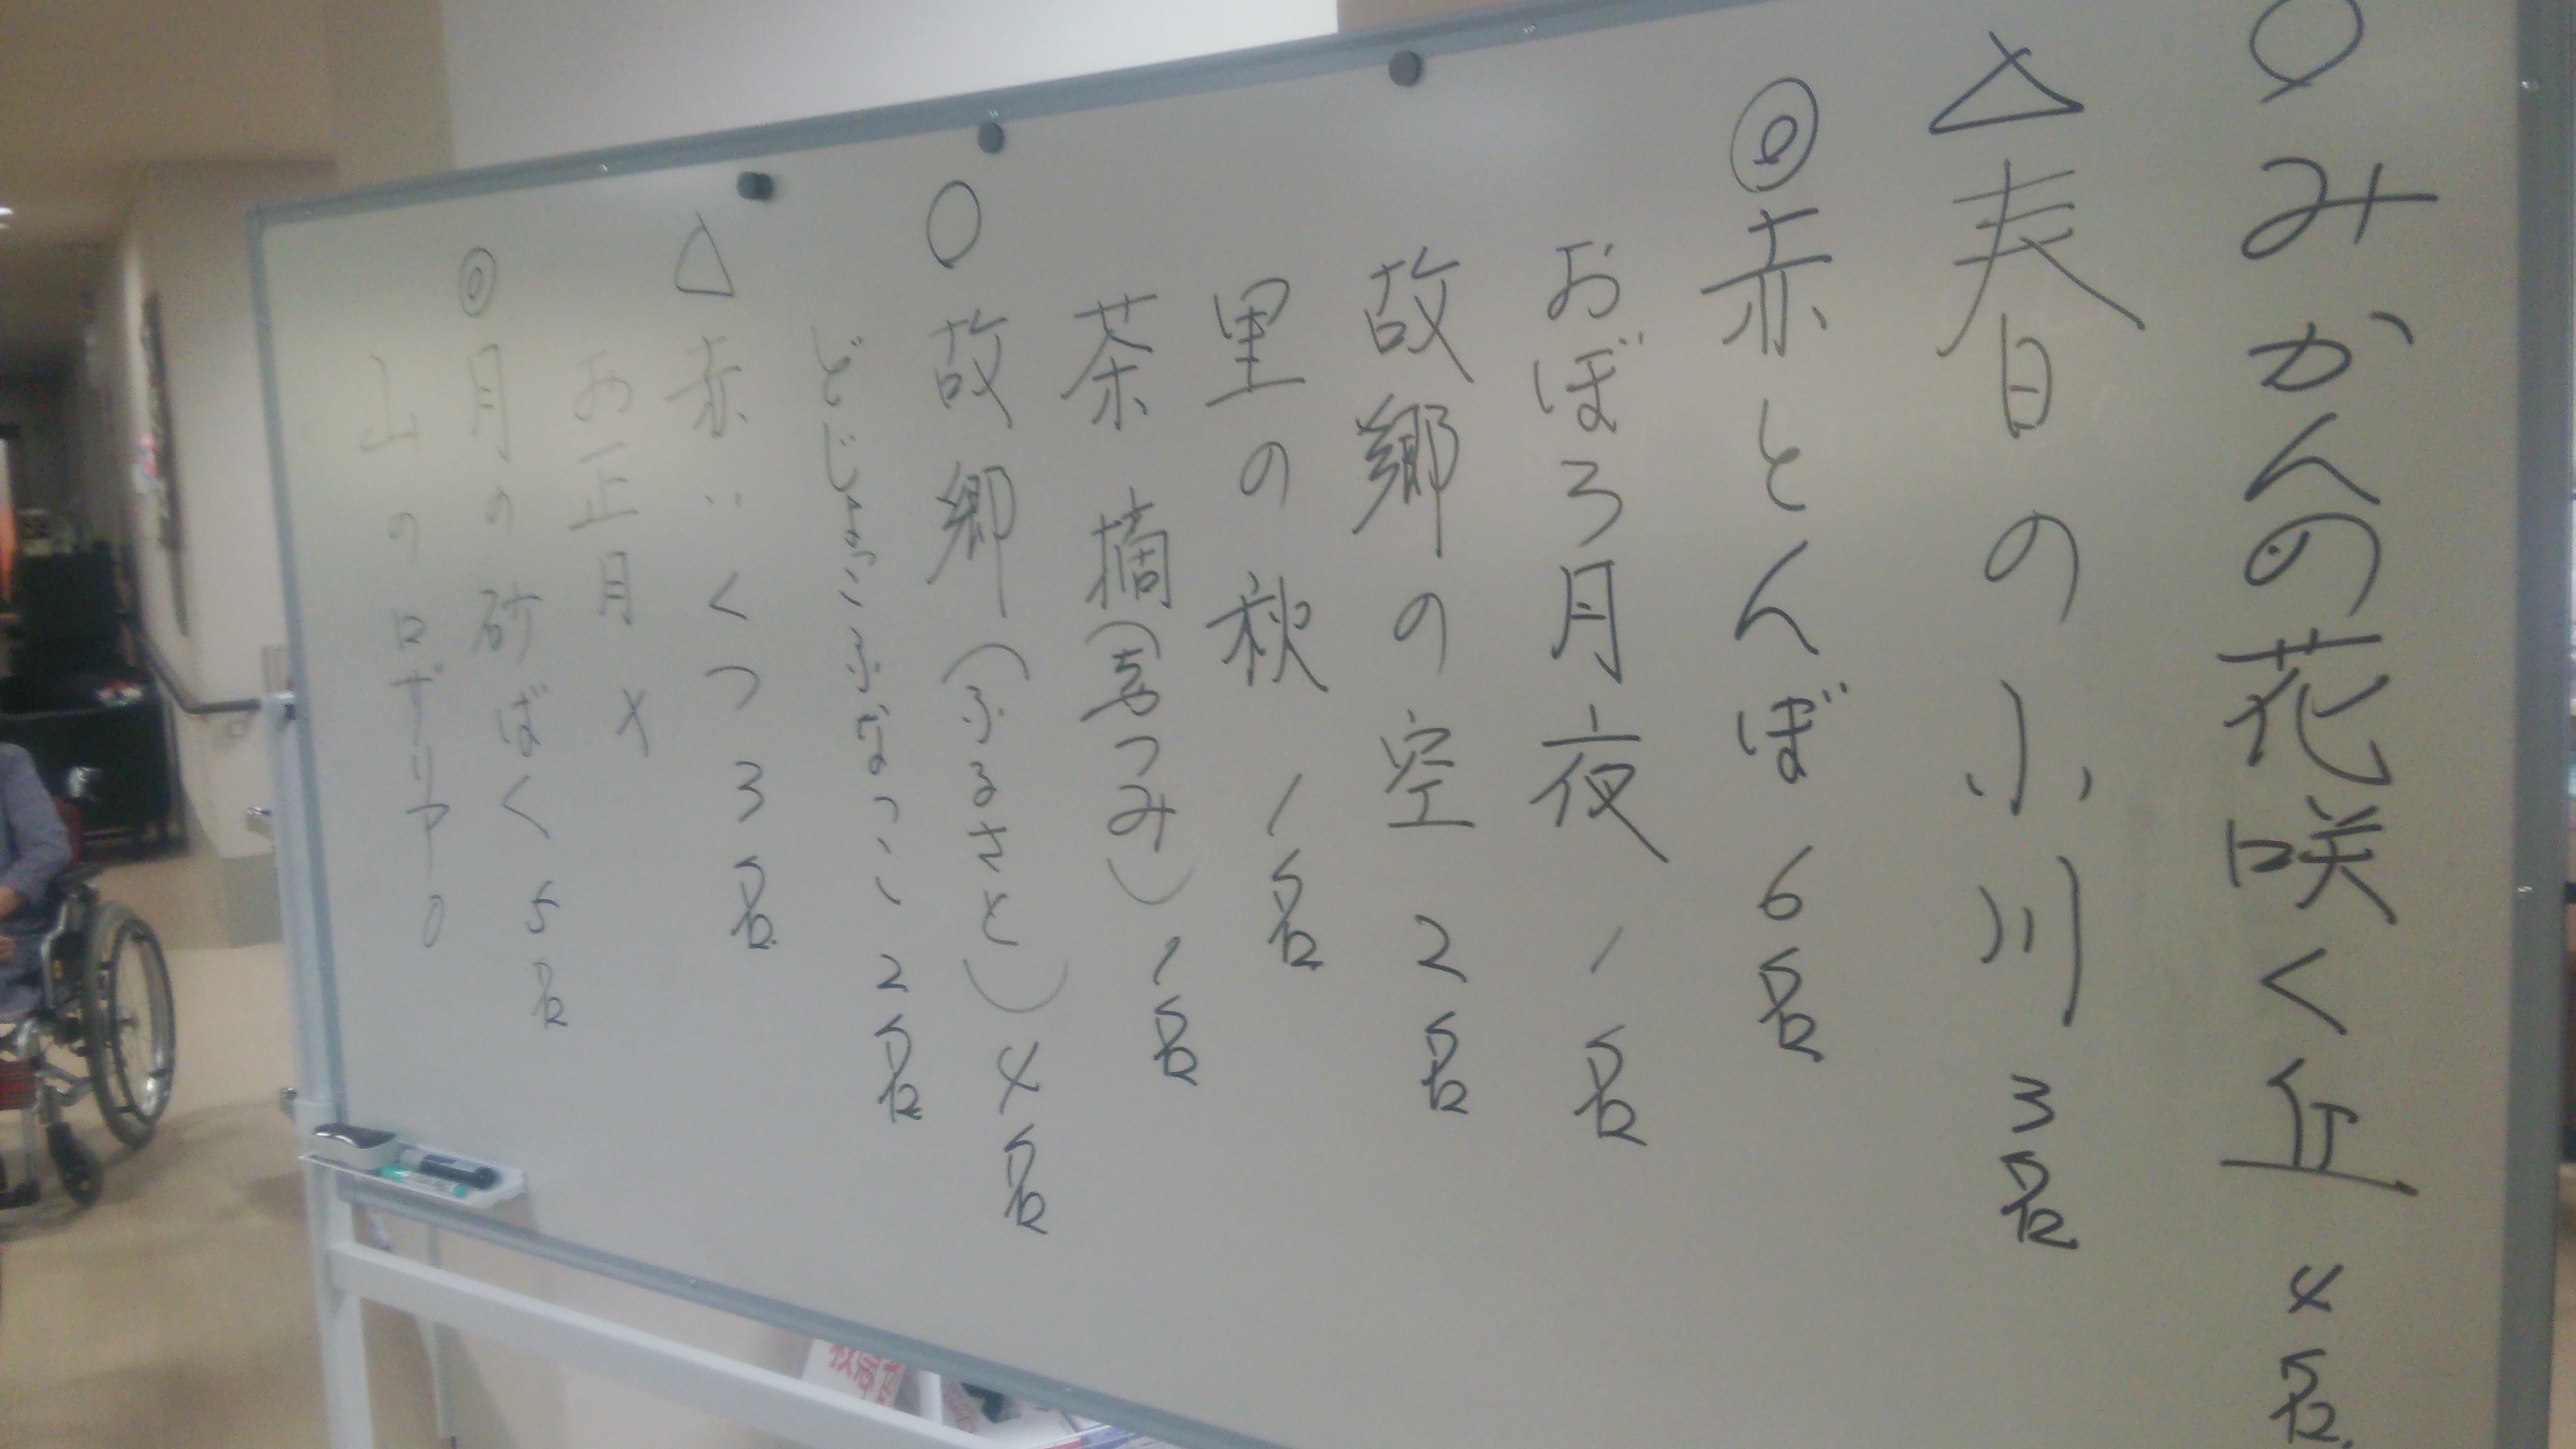 ○みかんの花咲く丘 4名
△春日の小川 3名
◎赤とんぼ 6名
おぼろ月夜 1名
故郷の空 2名
里の秋 1名
茶摘(つみ) 1名
○故郷(ふるさと) 4名
どじょっこふなっこ 2名
△赤いくつ 3名
お正月 ×
◎月の砂ばく 5名
山のロザリア 0